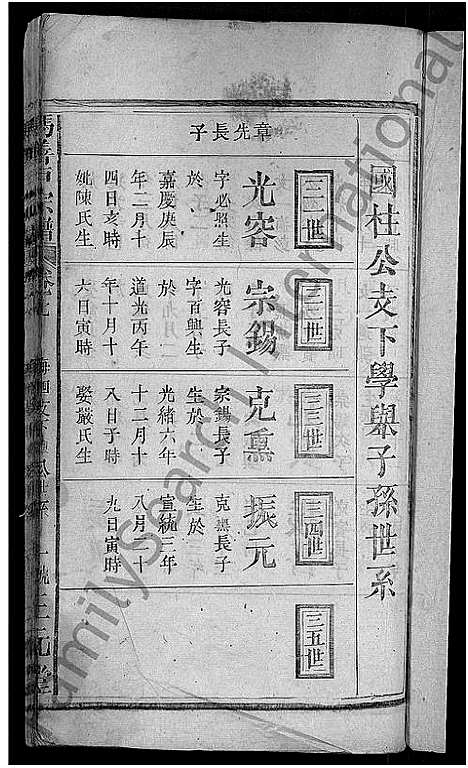 國柱公支下學與子孫世系
章先長子
三一世
光容
字必照生
於
嘉慶庚辰
年二月十
四日亥時
妣陳氏生
三二世
宗錫
光容長子
字百興生
於
道光丙午
年十月十
六日寅時
三三世
克熏
宗錫長子
生於
光緒六年
十二月十
八日子時
娶嚴氏生
三四世
振元
克熏長子
生於
宣統三年
八月十
九日寅時
三五世
FamilySearch International